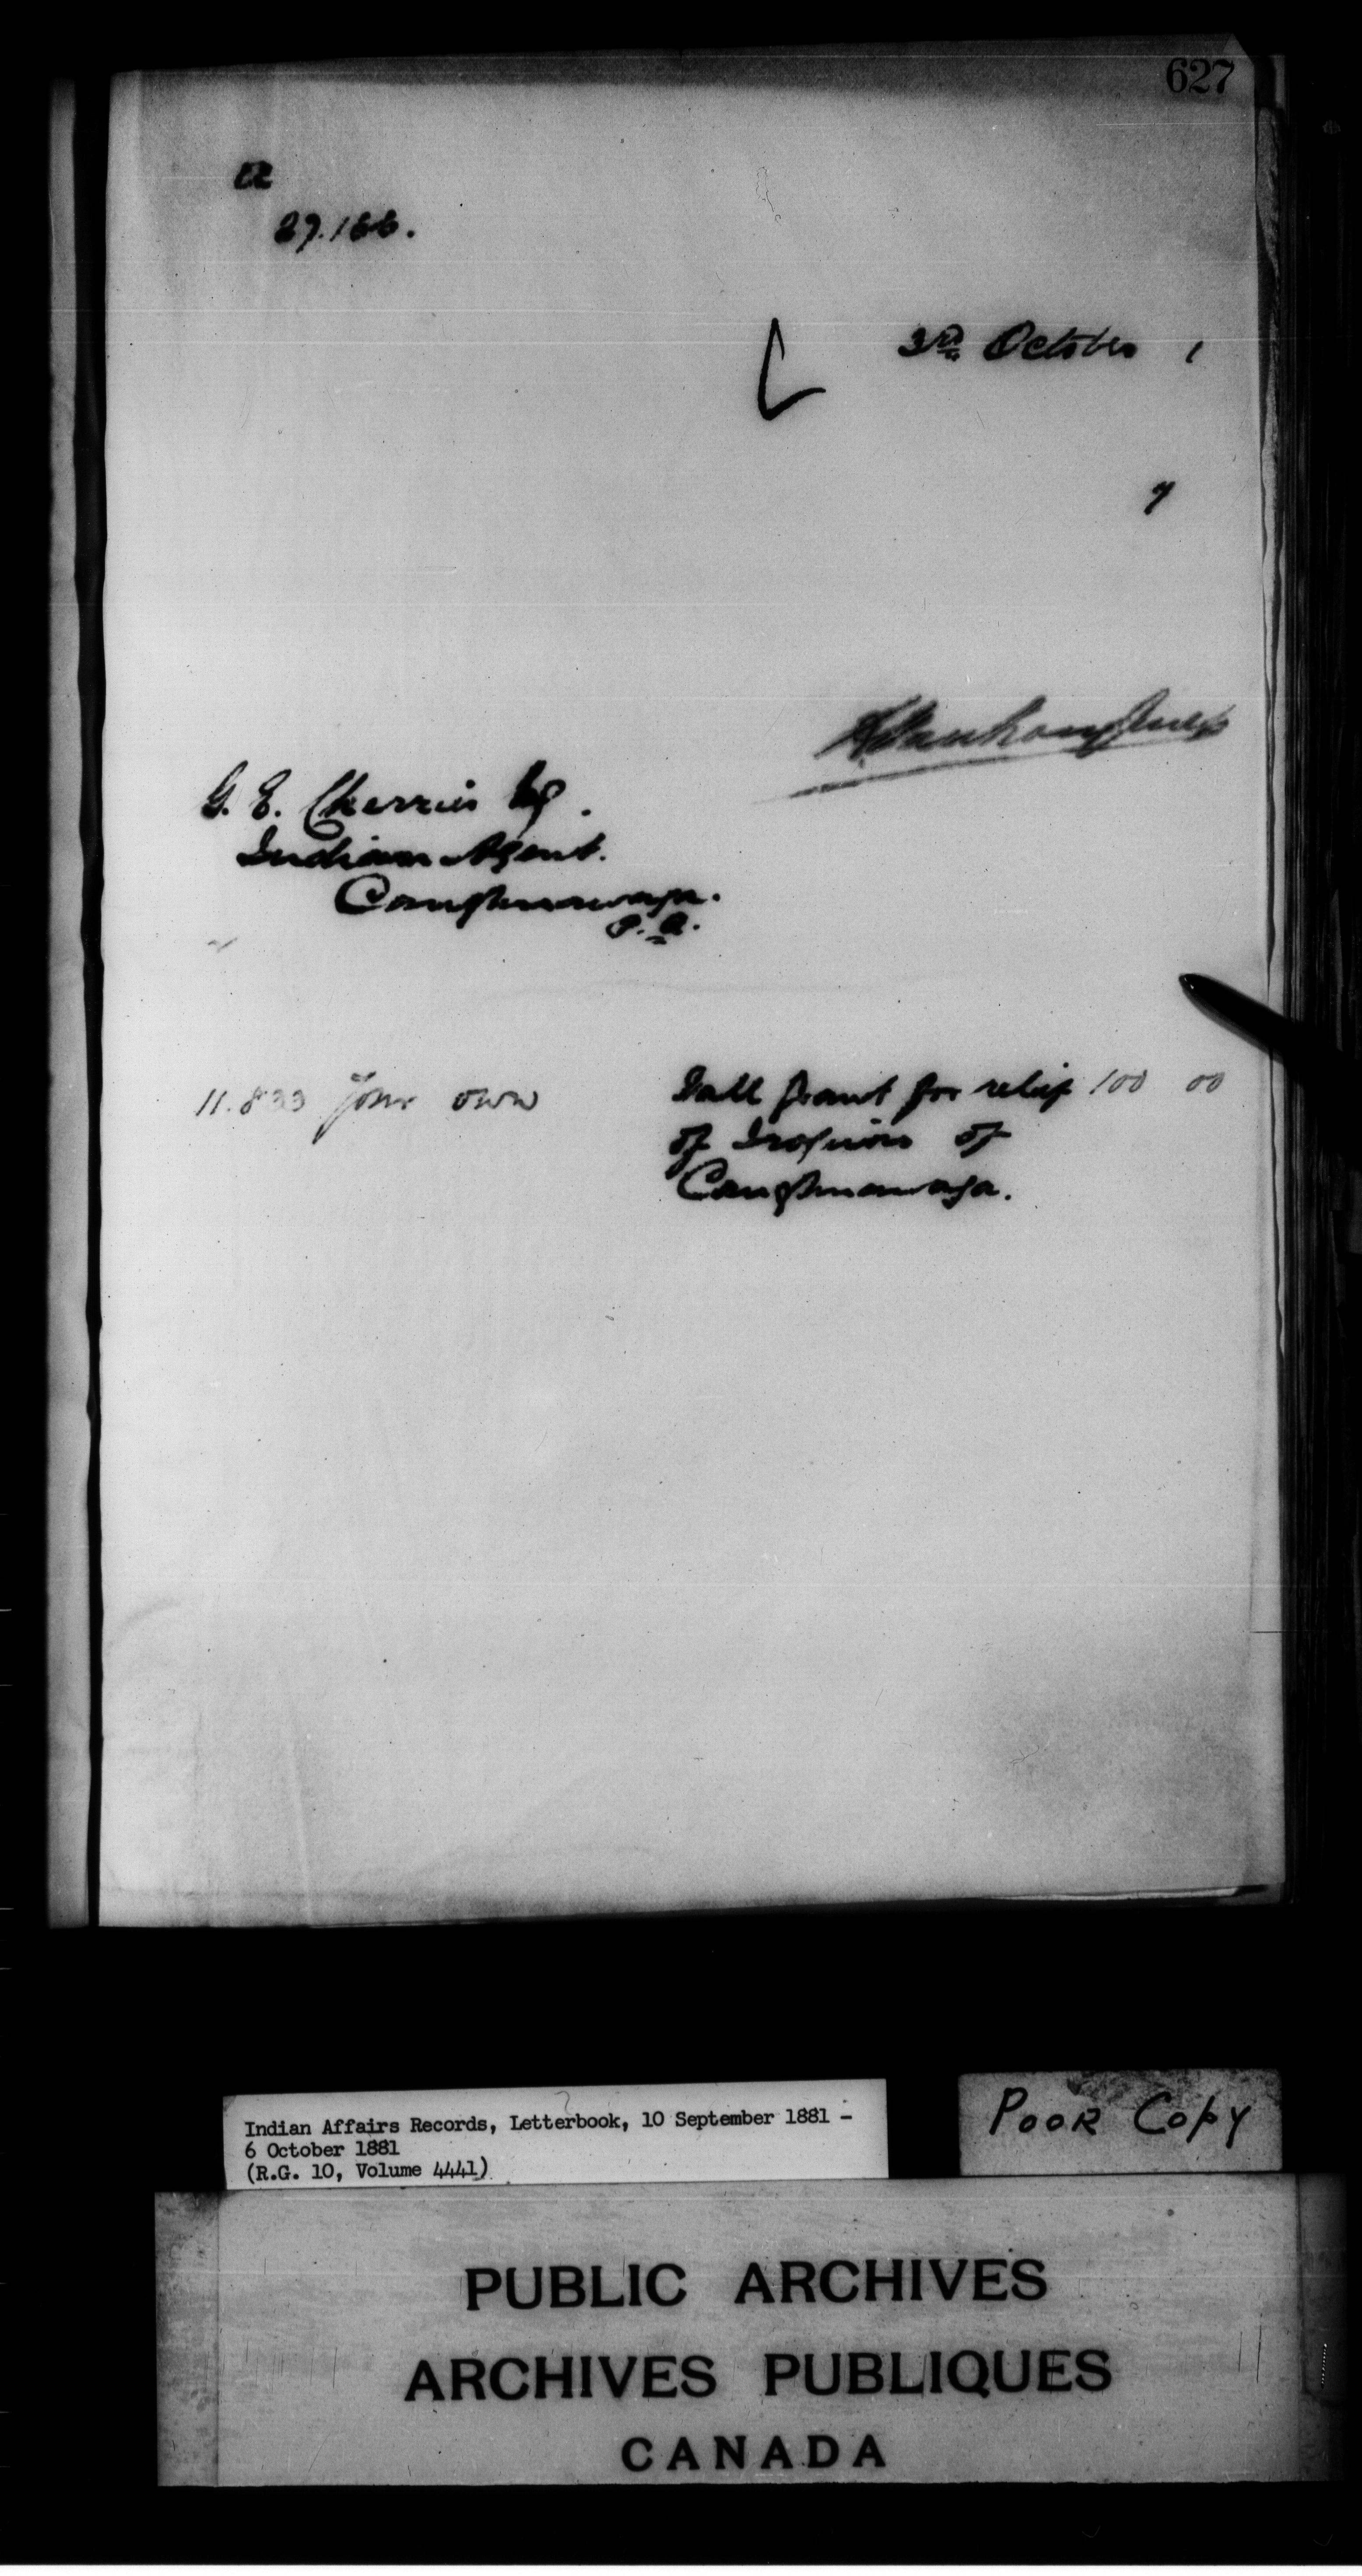 627
27.166.
3rd October 1
7
L Vankoughnet
G. E. Cherrier Esq.
Indian Agent.
Caughnawaga.
P.Q.
11.833 Your own Fall Grant for relief 100 00
of Iroquois of
Caughnawaga.
Indian Affairs Records, Letterbook, 10 September 1881 -
6 October 1881
(R.G. 10, Volume 4441)
Poor Copy
PUBLIC ARCHIVES
ARCHIVES PUBLIQUES
CANADA